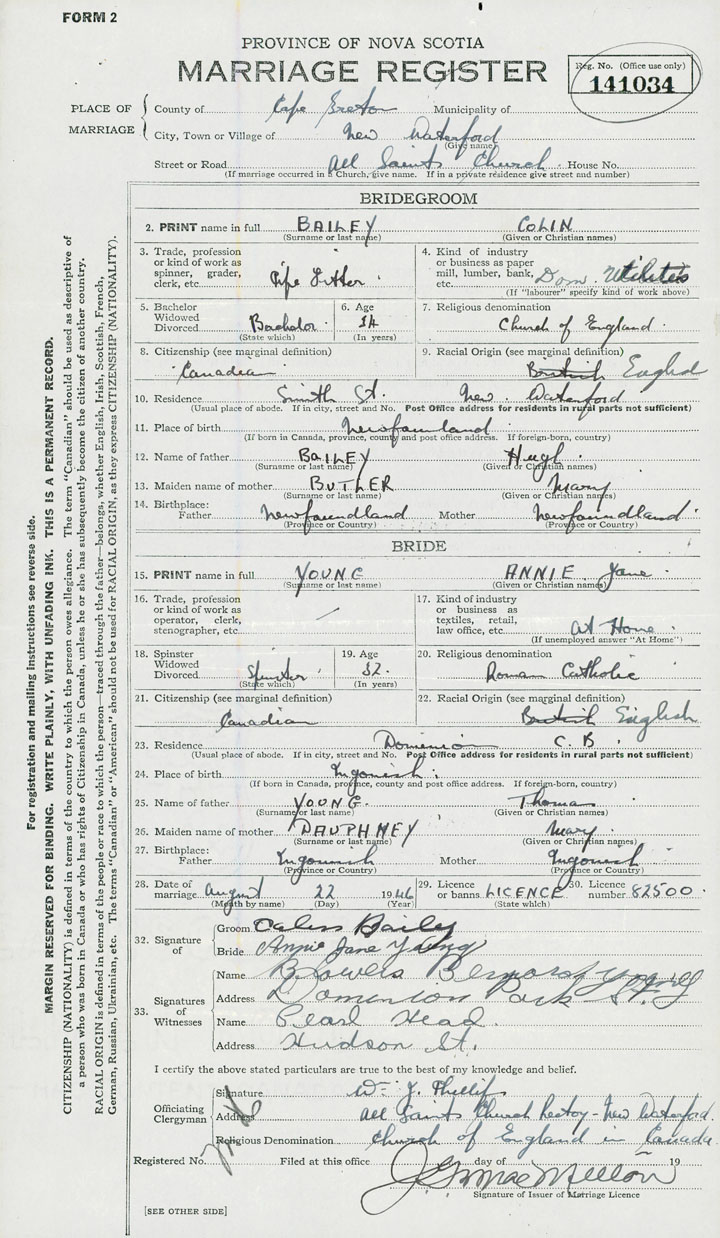 FORM 2
PROVINCE OF NOVA SCOTIA
MARRIAGE REGISTER
Reg. No. (Office use only)
141034
PLACE OF MARRIAGE
County of Cape Breton Municipality of
City, Town or Village of New Waterford
(Give name)
Street or Road All Saints Church House No.
(If marriage occurred in Church, give name. If in a private residence give street and number)
BRIDEGROOM
2. PRINT name in full BAILEY COLIN
(Surname or last name) (Given or Christian names)
3. Trade, profession or kind of work as spinner, grader, clerk, etc. Pipe Fitter
4. Kind of industry or business as paper mill, lumber, bank, etc. Dom. Utilities
(If "labourer" specify kind of work above)
5. Bachelor Widowed Divorced Bachelor
(State which)
6. Age 34
(In years)
7. Religious denomination
Church of England
8. Citizenship (see marginal definition)
Canadian
9. Racial Origin (see marginal definition)
British English
10. Residence Smith St. New Waterford
(Usual place of abode. If in city, street and No. Post Office address for residents in rural parts not sufficient)
11. Place of birth Newfounland
(If born in Canada, province, county and post office address. If foreign-born, country)
12. Name of father BAILEY Hugh
(Surname or last name) (Given or Christian names)
13. Maiden name of mother BUTLER Mary
(Surname or last name) (Given or Christian names)
14. Birthplace:
Father Newfoundland Mother Newfoundland
(Province or Country) (Province or Country)
BRIDE
15. PRINT name in full YOUNG ANNIE Jane
(Surname or last name) (Given or Christian names)
16. Trade, profession or kind of work as operator, clerk, stenographer, etc.
17. Kind of industry or business as textiles, retail, law office, etc. At Home
(If unemployed answer "At Home")
18. Spinster Widowed Divorced Spinster
(State which)
19. Age 32
(In years)
20. Religious denomination
Roman Catholic
21. Citizenship (see marginal definition)
Canadian
22. Racial Origin (see marginal definition)
British English
23. Residence Dominion C. B.
(Usual place of abode. If in city, street and No. Post Office address for residents in rural parts not sufficient)
24. Place of birth Ingonish
(If born in Canada, province, county and post office address. If foreign-born, country)
25. Name of father YOUNG Thomas
(Surname or last name) (Given or Christian names)
26. Maiden name of mother DAUPHNEY Mary
(Surname or last name) (Given or Christian names)
27. Birthplace:
Father Ingonish Mother Ingonish
(Province or Country) (Province or Country)
28. Date of marriage August 22 1946
(Month by name) (Day)
29. Licence or banns LICENCE
(State which)
30. Licence number 82500
32. Signature of
Groom Baily
Bride Annie Jane Young
33. Signatures of Witnesses
Name
Address Dominion Park St.
Name Pearl Head
Address Hudson St.
I certify the above stated particulars are true to the best of my knowledge and belief.
Officiating Clergyman
Signature W. J. Phillips
Address All Saints Church Rectory - New Waterford
Religious Denomination Church of England in Canada
Registered No. Filed at this office day of 19
Signature of Issuer of Marriage Licence
[SEE OTHER SIDE]
For registration and mailing instructions see reverse side.
MARGIN RESERVED FOR BINDING. WRITE PLAINLY, WITH UNFADING INK. THIS IS A PERMANENT RECORD.
CITIZENSHIP (NATIONALITY) is defined in terms of the country to which the person owes allegiance. The term "Canadian" should be used as descriptive of
a person who was born in Canada or who has rights of Citizenship in Canada, unless he or she has subsequently become the citizen of another country.
RACIAL ORIGIN is defined in terms of the people or race to which the person—traced through the father—belongs, whether English, Irish, Scottish, French,
German, Russian, Ukrainian, etc. The terms "Canadian" or "American" should not be used for RACIAL ORIGIN, as they express CITIZENSHIP (NATIONALITY).